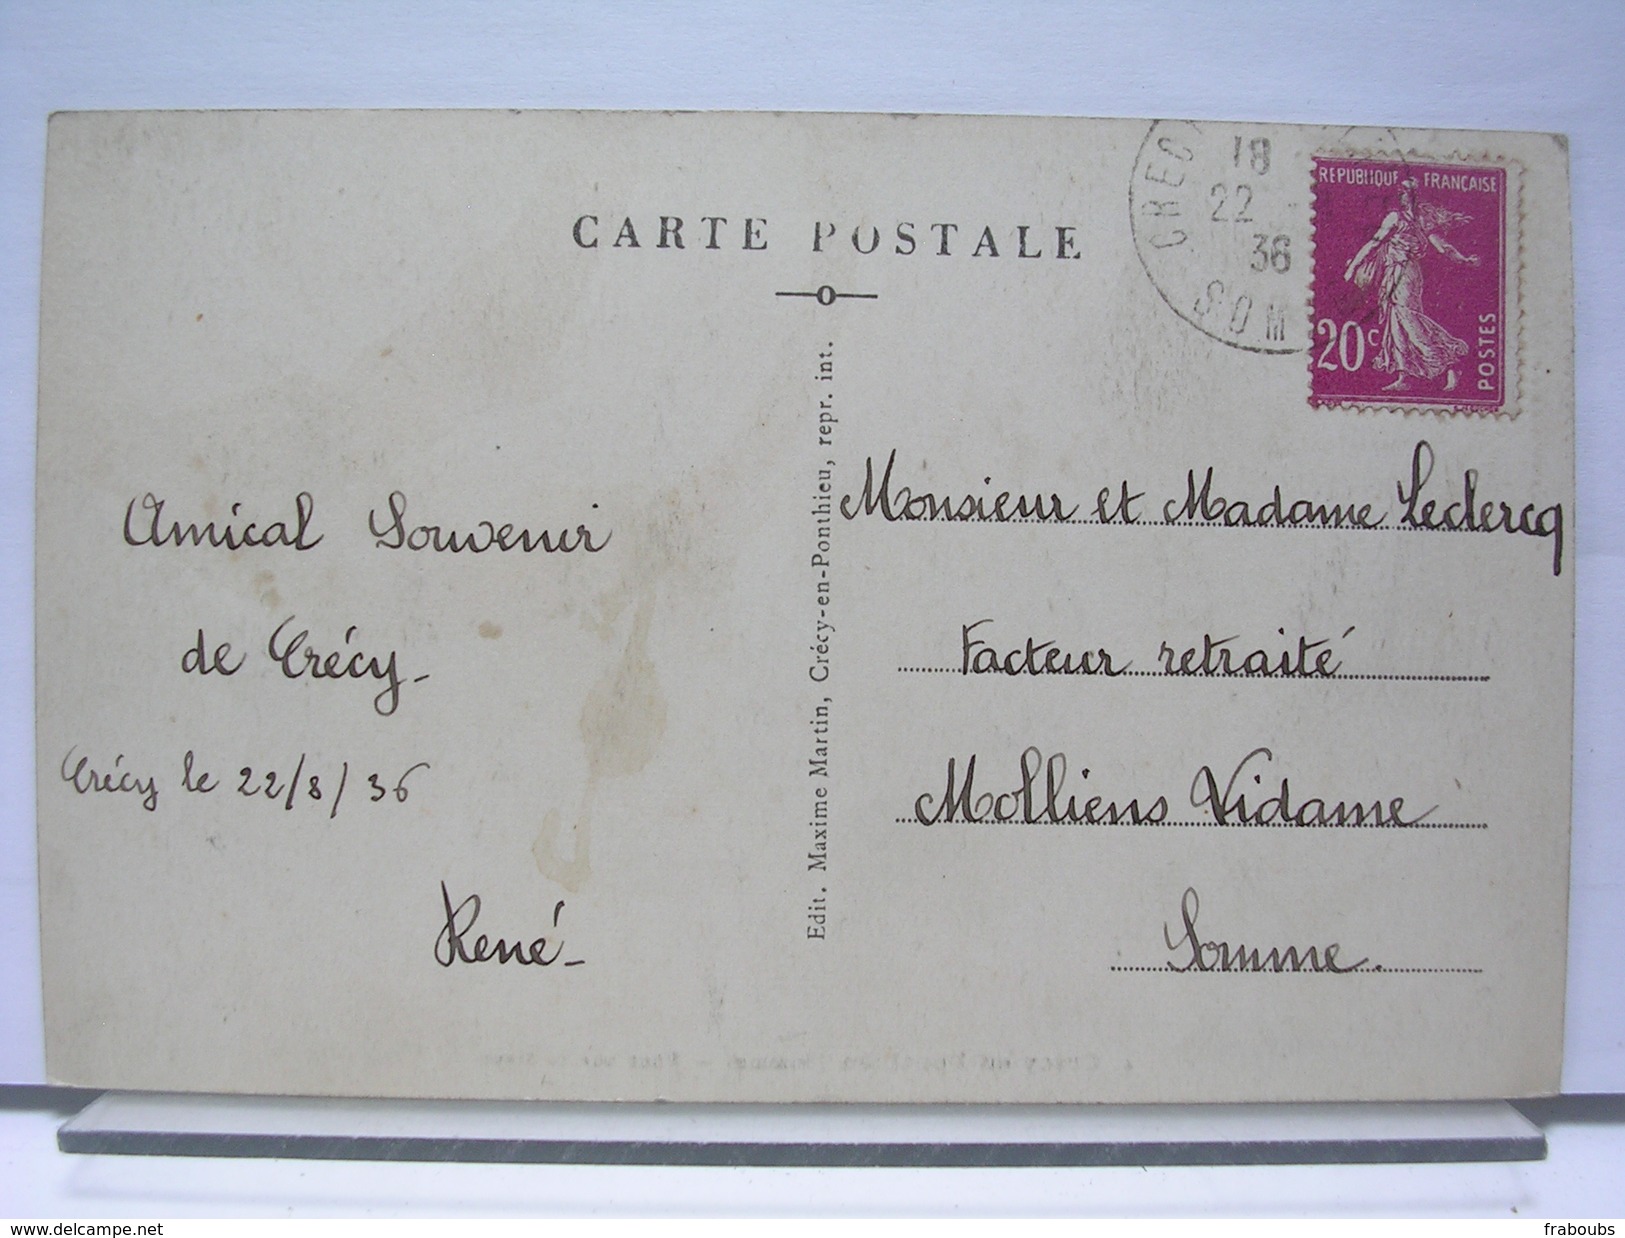 CARTE POSTALE
18
22
36
SOM
REPUBLIQUE FRANÇAISE
20c
POSTES
Amical Souvenir
de Crécy-
Crécy le 22/8/36
René-
Edit. Maxime Martin, Crécy-en-Ponthieu, repr. int.
Monsieur et Madame Leclercq
Facteur retraité
Molliens Vidame
Somme.
www.delcampe.net
fraboubs